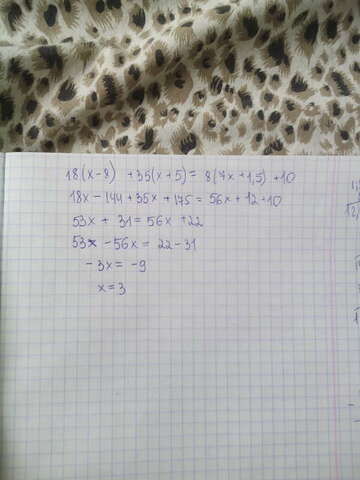 18(x-8) +35(x+5)= 8(7x+1,5) +10
18x - 144 +35x +175 = 56x + 12+10
53x + 31 = 56x +22
53x - 56x = 22-31
- 3x = -9
x = 3